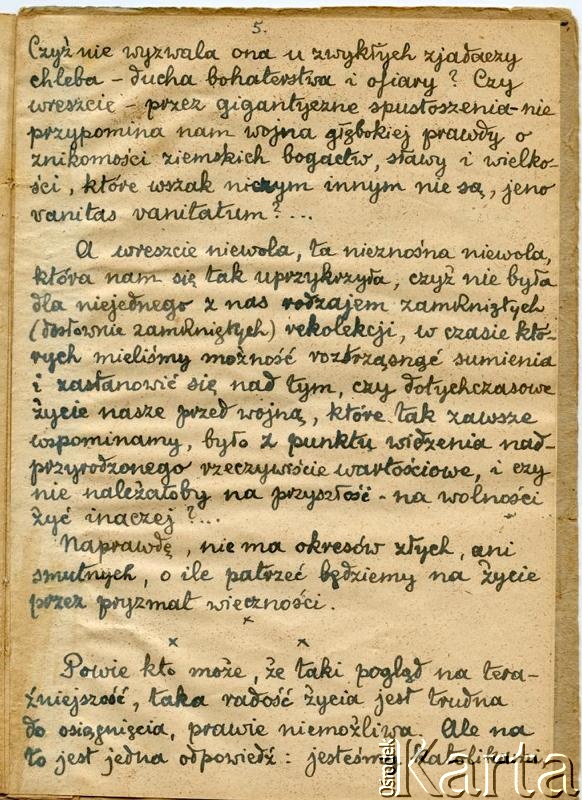 5.
Czyż nie wyzwala ona u zwykłych zjadaczy
chleba – ducha bohaterstwa i ofiary? Czy
wreszcie – przez gigantyczne spustoszenia – nie
przypomina nam wojna głębokiej prawdy o
znikomości ziemskich bogactw, sławy i wielko-
ści, które wszak niczym innym nie są, jeno
vanitas vanitatum?...
A wreszcie niewola, ta nieznośna niewola,
która nam się tak uprzykrzyła, czyż nie była
dla niejednego z nas rodzajem zamkniętych
(dosłownie zamkniętych) rekolekcji, w czasie któ-
rych mieliśmy możność roztrząsnąć sumienia
i zastanowić się nad tym, czy dotychczasowe
życie nasze przed wojną, które tak zawsze
wspominamy, było z punktu widzenia nad-
przyrodzonego rzeczywiście wartościowe, i czy
nie należałoby na przyszłość – na wolności
żyć inaczej?...
Naprawdę, nie ma okresów złych, ani
smutnych, o ile patrzeć będziemy na życie
przez pryzmat wieczności.
x
x x
Powie kto może, że taki pogląd na tera-
źniejszość, taka radość życia jest trudna
do osiągnięcia, prawie niemożliwa. Ale na
to jest jedna odpowiedź: jesteśmy katolikami,
Ośrodek Karta